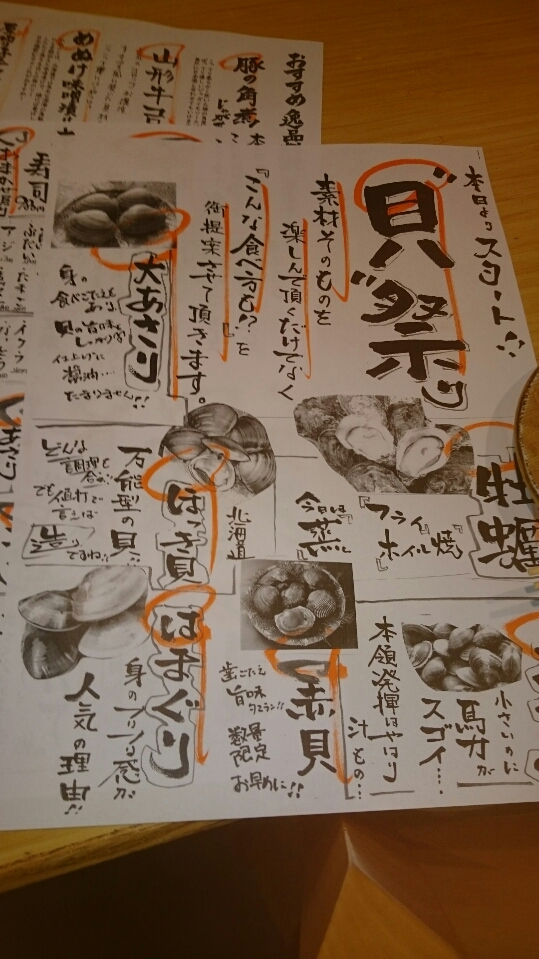 本日より スタート!!
貝祭り
素材そのものを
楽しんで頂くだけでなく
『こんな食べ方も!?』を
御提案させて頂きます。
大あさり
身の
食べごたえも
あり
貝の旨味も
しっかり
仕上げに
醤油…
たまりません!!
牡蠣
『フライ』
『ホイル焼』
今日は
『蒸』に
北海道
ほっき貝
万能型の貝!!
どんな
調理も
合う
でも値打で
言えば
造り
ですね!!
小さいのに
馬力が
スゴイ…
本領発揮はやはり
汁もの…
赤貝
歯ごたえ
旨味
数量
限定
お早めに!!
はまぐり
身のプリプリ感が
人気の理由!!
おすすめ逸品
豚の角煮
山形牛
めぬけ味噌漬け
寿司
アジ
イクラ